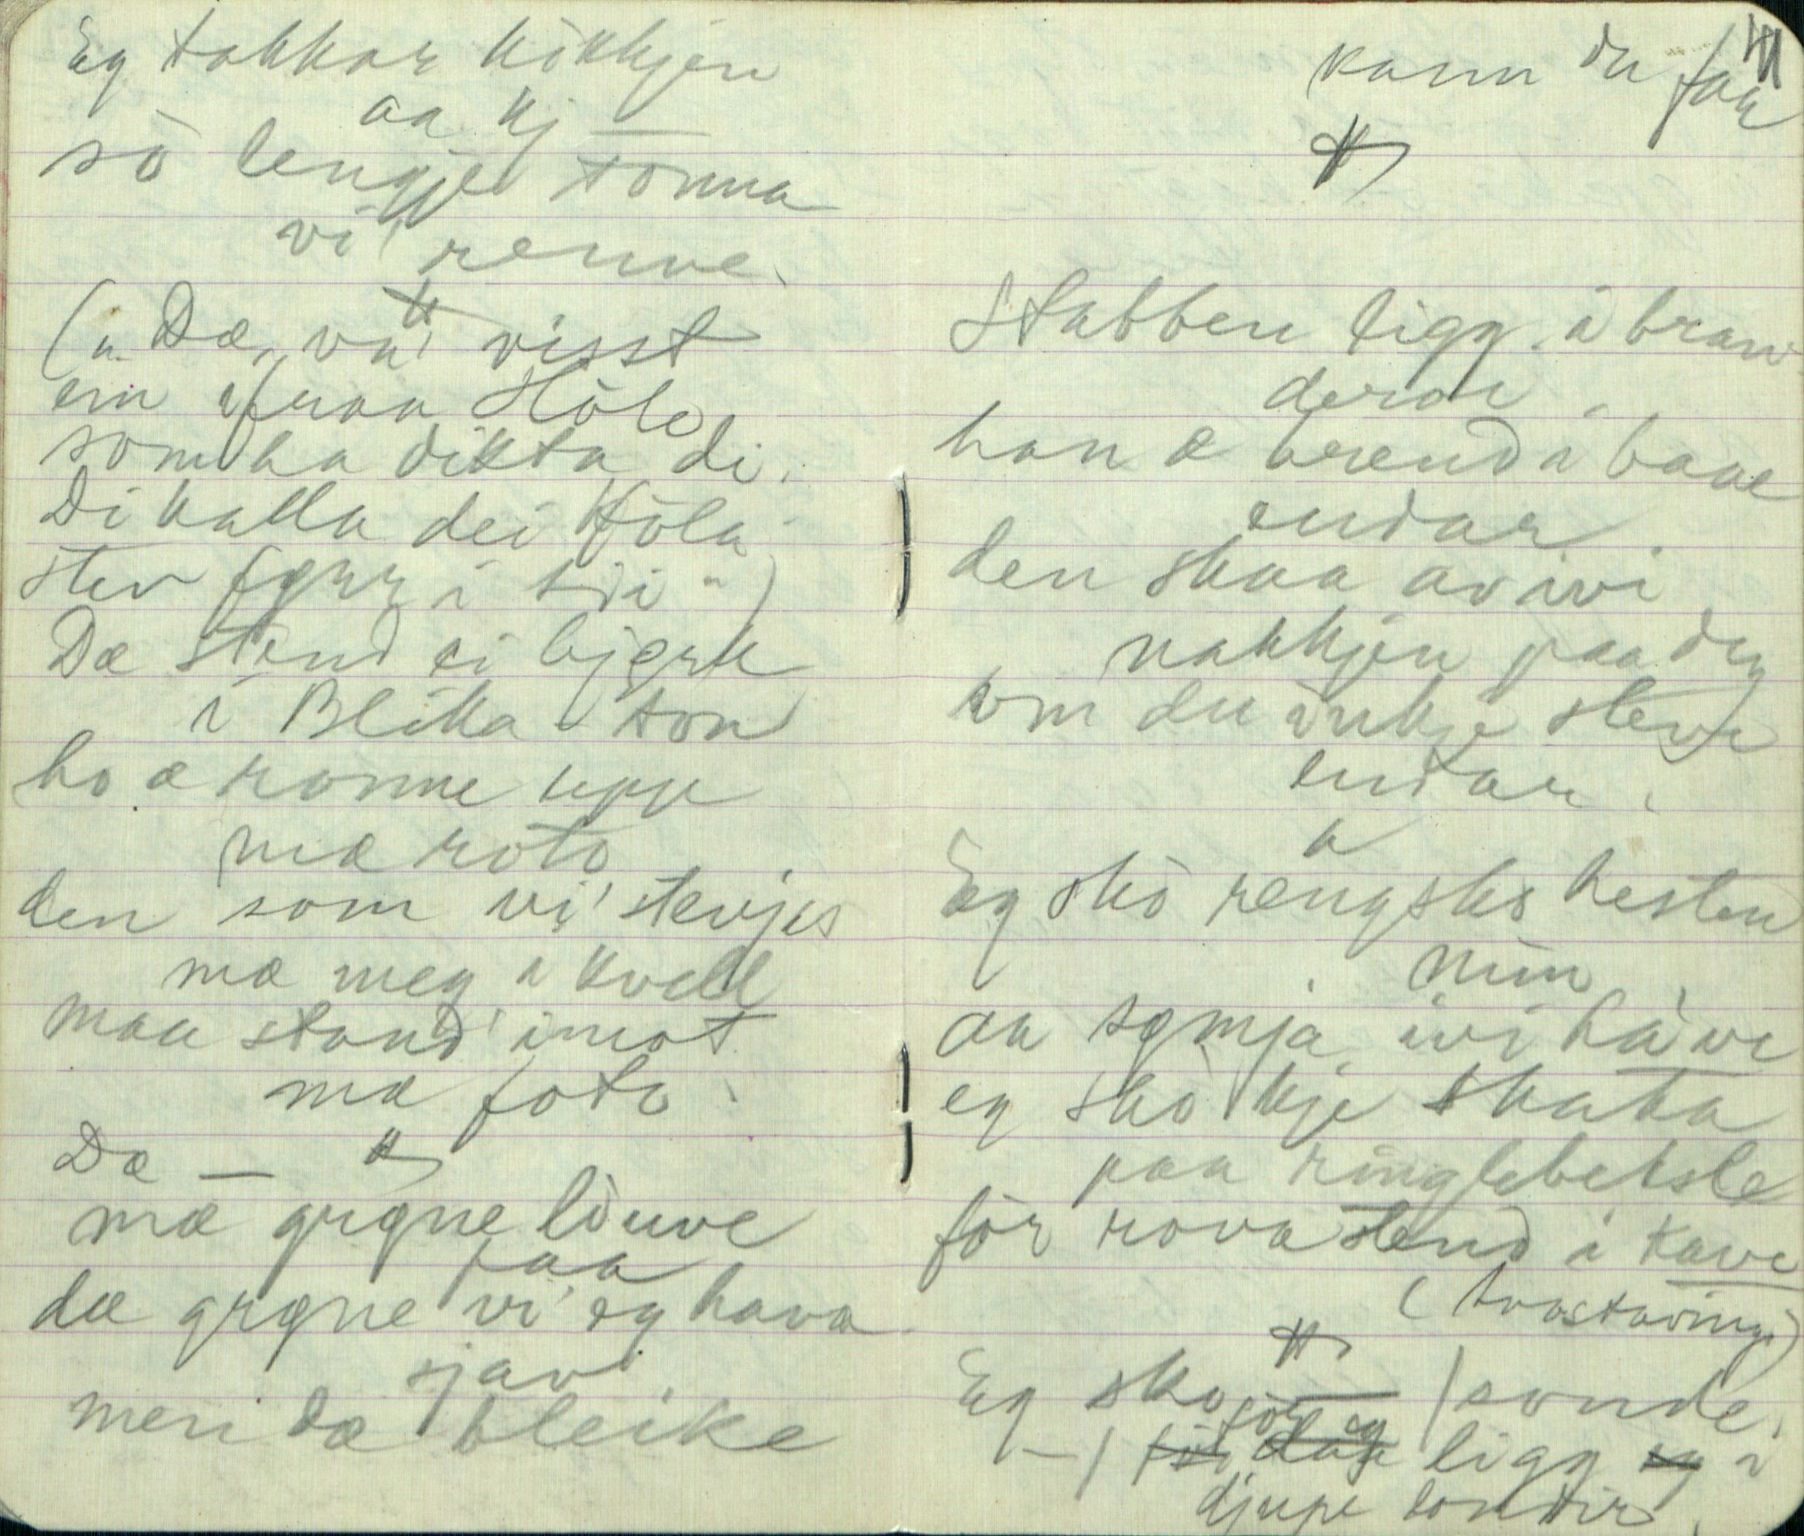 Eg takkar kökkjen
aa kj —
sö lengje tonna
vi' renne.
(„ Dæ, va' visst
ein ifraa Höle
som ha dikta di.
Di kalla dei Höla-
stev fyrr i ti'i")
Dæ stend ei bjørk
i Blika-ton
ho æ ronne upp
mæ roto
den som vi' stevjes
mæ meg i kveld
maa stand' imot
mæ foto.
Dæ —
mæ grøne lauve
paa
dæ grøne vi' eg hava
sjav
men dæ bleike
kann du faa
Stabben ligg i bran-
deror
han æ brend i baae
endar
den skaa av ivi
nakkjen paa deg
om du inkje steve
endar.
Eg sko rengsko hesten
min
aa symja ivi haave
eg sko kje skaka
paa ringlebeksle
för rova stend i kave
(tvostavings)
Eg sko — | sonde.
— | för eg ligg i
djupe londir